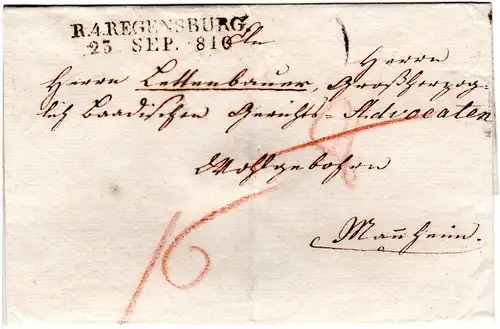 R.4.REGENSBURG.
23 SEP. 810
An
Herrn
Herrn Bettenbauer, Großherzog-
lich Baadischen Gerichts-Advocaten
Wohlgebohren
Mannheim.
16